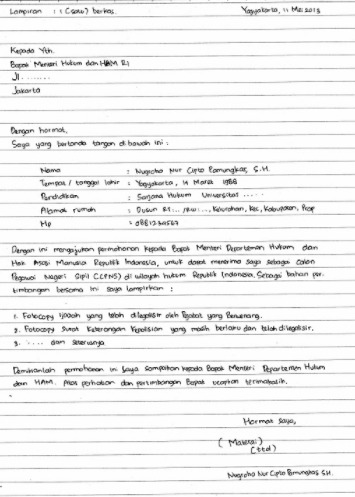 Lampiran : 1 (satu) berkas. Yogyakarta, 11 Mei 2015
Kepada Yth.
Bapak Menteri Hukum dan HAM RI
Jl. ........
Jakarta
Dengan hormat,
Saya yang bertanda tangan di bawah ini :
Nama : Nugroho Nur Cipto Pamungkas, S.H.
Tempat / tanggal lahir : Yogyakarta, 14 Maret 1988
Pendidikan : Sarjana Hukum Universitas .....
Alamat rumah : Dusun RT... /RW..., Kelurahan, Kec, Kabupaten, Prop
Hp : 0881234567
Dengan ini mengajukan permohonan kepada Bapak Menteri Departemen Hukum dan
Hak Asasi Manusia Republik Indonesia, untuk dapat menerima saya sebagai Calon
Pegawai Negeri Sipil (CPNS) di wilayah hukum Republik Indonesia. Sebagai bahan per-
timbangan bersama ini saya lampirkan :
1. Fotocopy ijazah yang telah dilegalisir oleh Pejabat yang Berwenang.
2. Fotocopy Surat Keterangan Kepolisian yang masih berlaku dan telah dilegalisir.
3. ..... dan seterusnya
Demikianlah permohonan ini saya sampaikan kepada Bapak Menteri Departemen Hukum
dan HAM. Atas perhatian dan pertimbangan Bapak ucapkan terimakasih.
Hormat saya,
( Materai )
(ttd)
Nugroho Nur Cipto Pamungkas S.H.